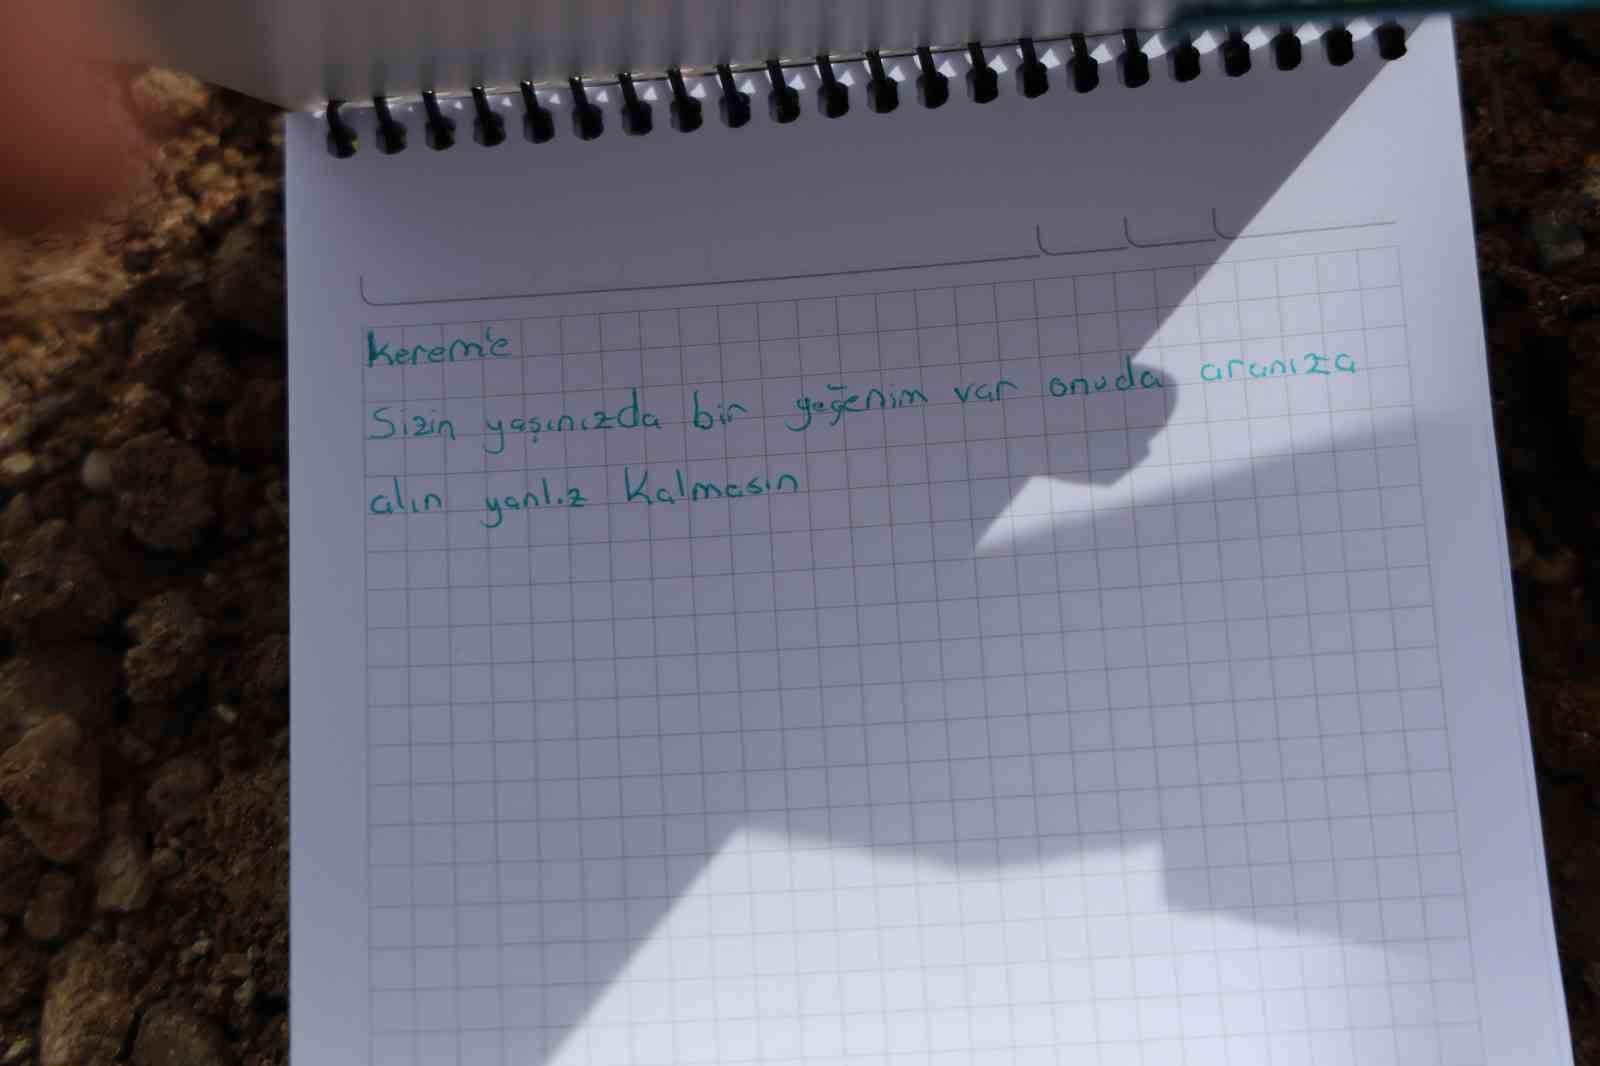 Kerem'e
Sizin yaşınızda bir yeğenim var onuda aranıza
alın yanlız Kalmasın